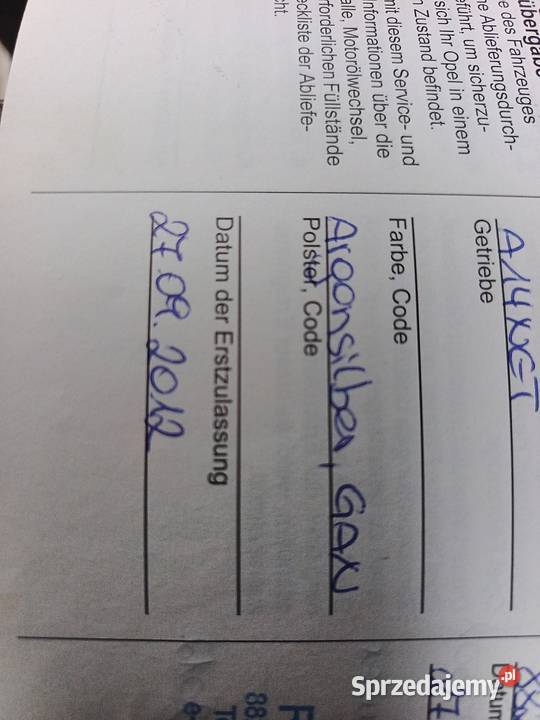 übergabe
e des Fahrzeuges
ne Ablieferungsdurch-
eführt, um sicherzu-
sich Ihr Opel in einem
n Zustand befindet.
mit diesem Service- und
nformationen über die
alle, Motorölwechsel,
rforderlichen Füllstände
eckliste der Abliefe-
cht.
A14NET
Getriebe
Farbe, Code
Argonsilber, GAN
Polster, Code
Datum der Erstzulassung
27.09.2012
Datum
88
Sprzedajemy.pl